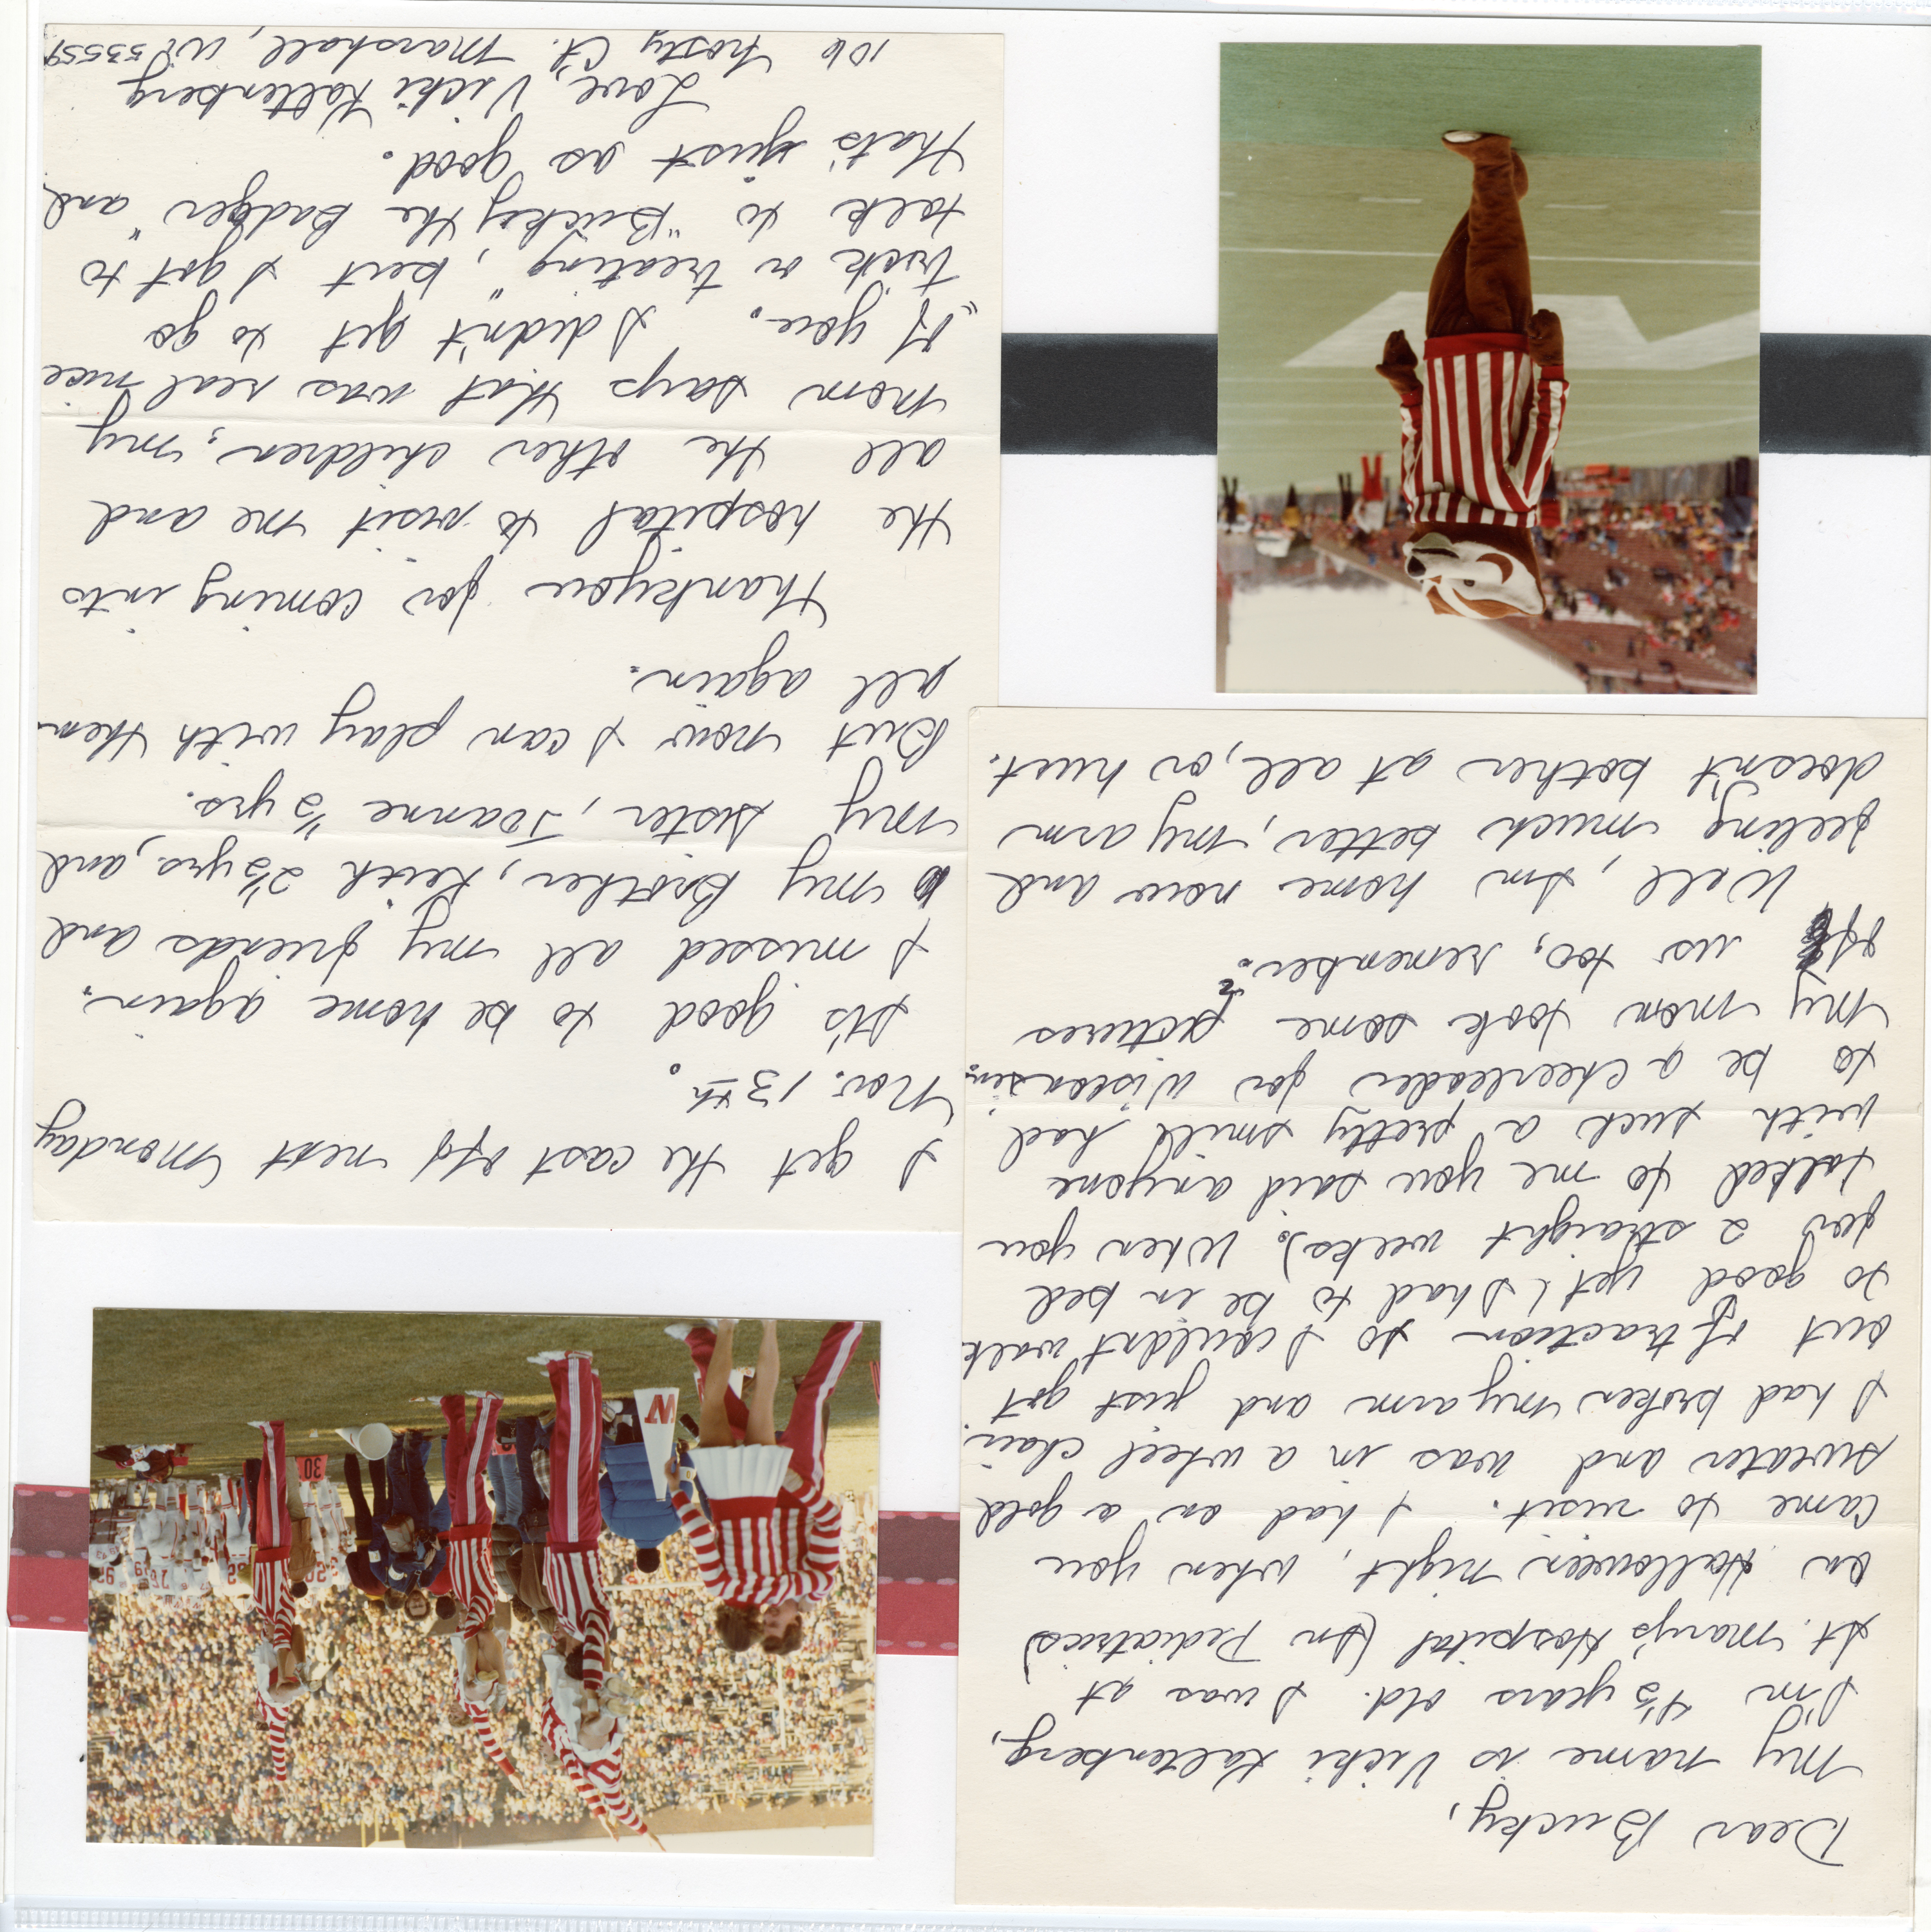 Dear Bucky,
My name is Vicki Kaltenberg,
I'm 4½ years old. I was at
St. Mary's Hospital (In Pediatrics)
on Halloween night, when you
came to visit. I had on a gold
sweater and was in a wheel chair.
I had broken my arm and just got
out of traction so I couldn't walk
to good yet (I had to be in bed
for 2 straight weeks). When you
talked to me you said anyone
with such a pretty smile had
to be a cheerleader for Wisconsin.
My mom took some pictures
of us too, remember?
Well, I'm home now and
feeling much better, my arm
doesn't bother at all, or hurt.
I get the cast off next Monday
Nov. 13th.
It's good to be home again.
I missed all my friends and
my Brother, Keith 2½ yrs., and
my sister, Joanne ½ yrs.
But now I can play with them
all again.
Thankyou for coming into
the hospital to visit me and
all the other children, my
mom says that was real nice
of you. I didn't get to go
"trick or treating", but I got to
talk to "Bucky the Badger" and
that's just as good.
Love, Vicki Kaltenberg
106 Frosty Ct. Marshall, Wi 53559
W
30